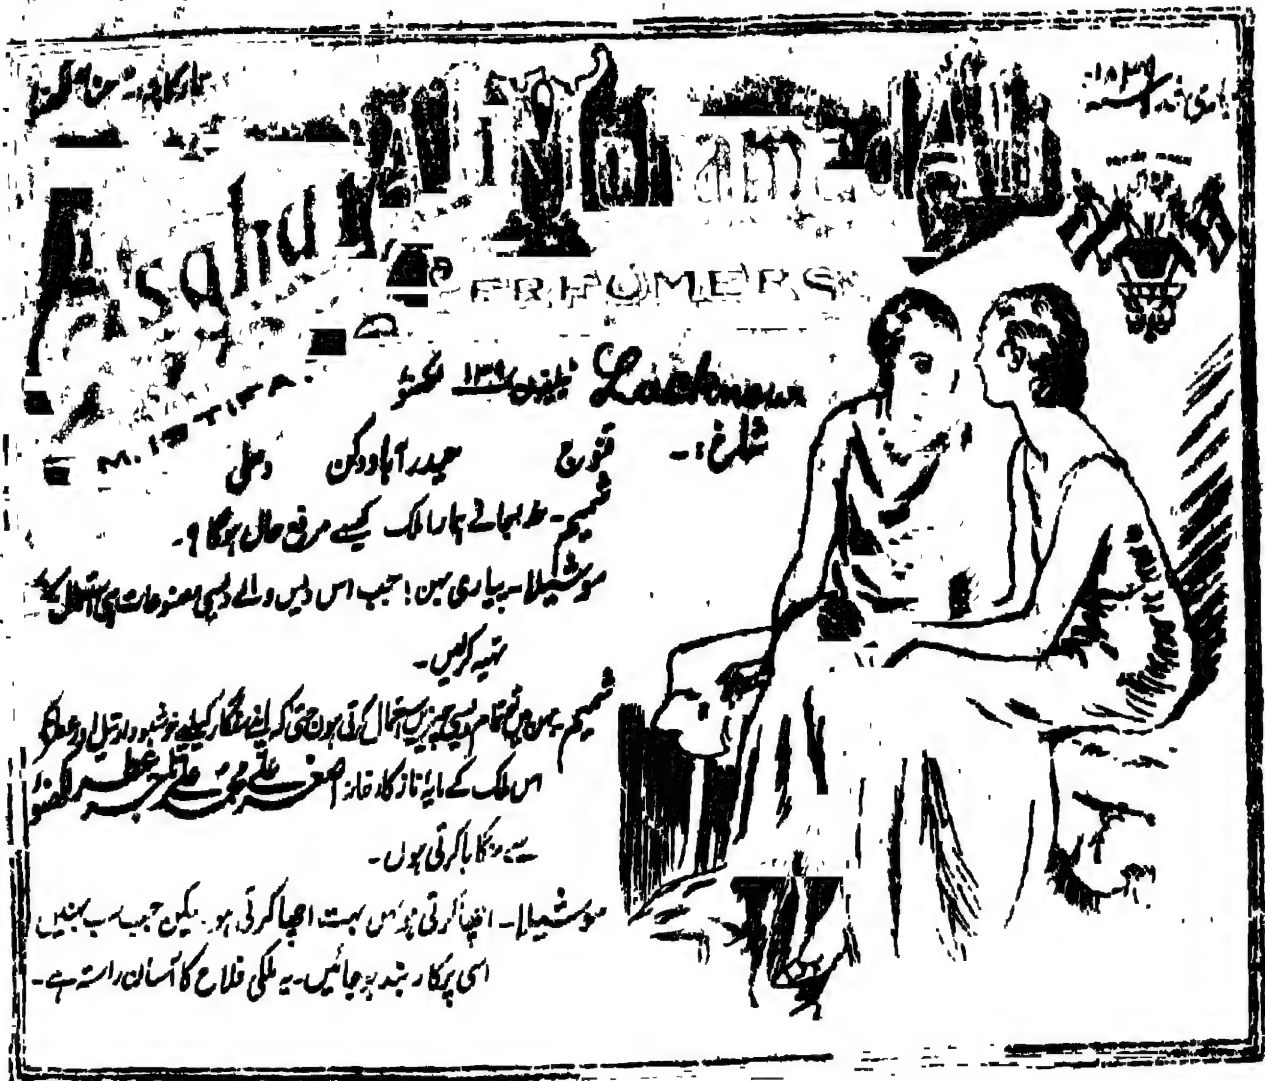 تار کا پتہ حنا لکھنؤ
Asghar Ali Mohammed Ali
TRADE MARK
PERFUMERS
M. ISTIFA
Lucknow ٹیلیفون ۱۳۹ لکھنؤ
شاخ :۔ قنوج حیدرآباد دکن دہلی
شمیم۔ بھائے ہمارا ملک کیسے مرفع حال ہوگا ؟۔
سوشیلا۔ پیاری بہن! جب اس دیس والے دیسی مصنوعات ہی استعمال
تہیہ کرلیں۔
شمیم بہن میں تمام دیسی چیزیں استعمال کرتی ہوں حتیٰ کہ اپنے سنگار کیلئے خوشبودار تیل اور عطر
اس ملک کے مایۂ ناز کارخانہ اصغر علی محمد علی تاجر عطر لکھنؤ
سے منگایا کرتی ہوں۔
سوشیلا۔ اچھا کرتی ہو بہن بہت اچھا کرتی ہو۔ لیکن جب سب بہنیں
اسی پر کاربند ہو جائیں۔ یہ ملکی فلاح کا آسان راستہ ہے۔